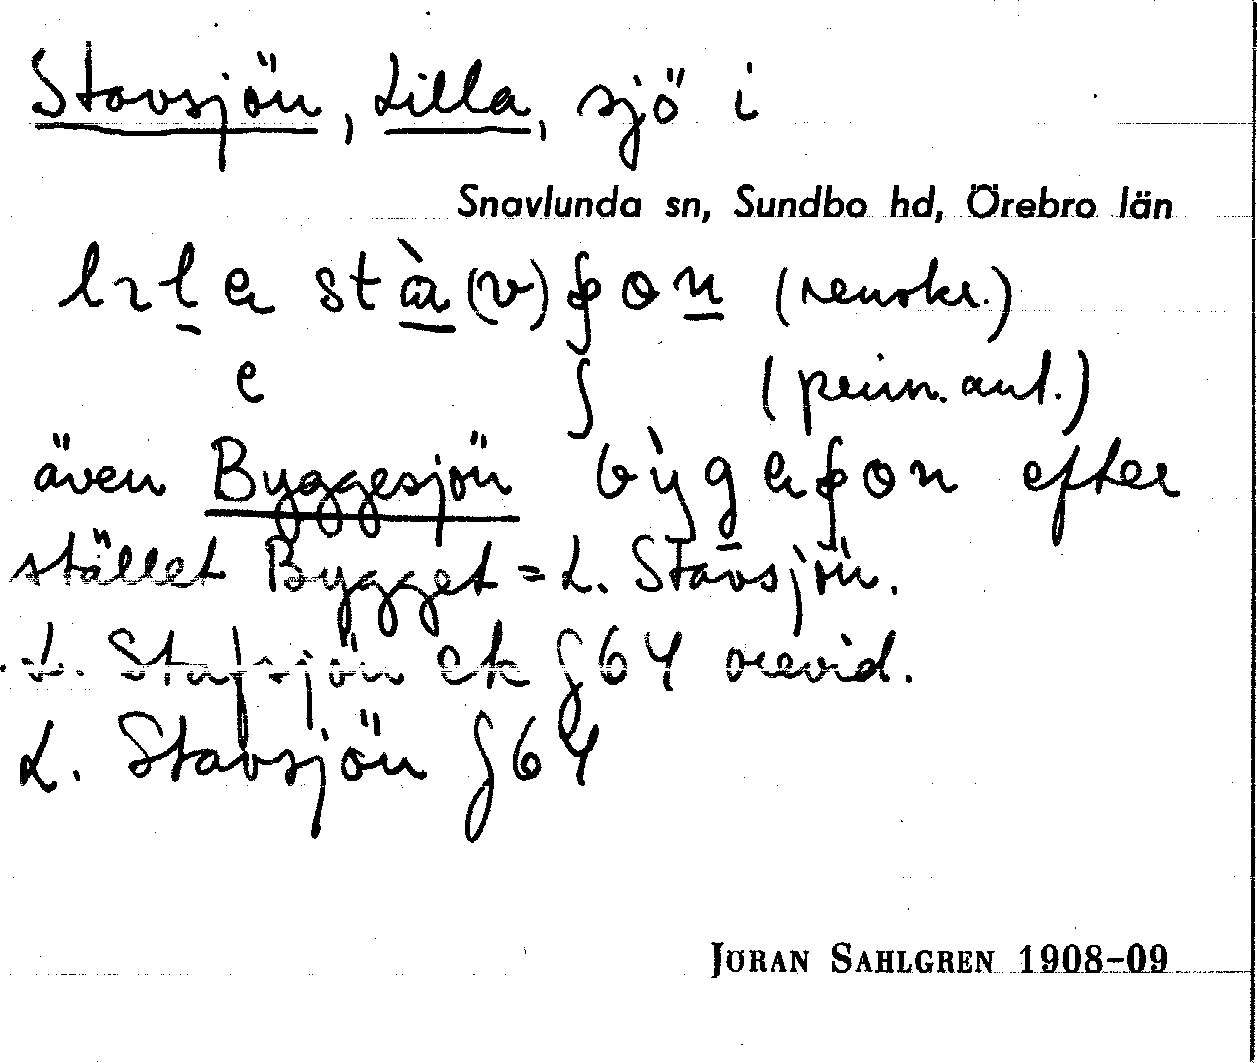 Stavsjön, Lilla, sjö i
Snavlunda sn, Sundbo hd, Örebro län
(renskr.)
e ʃ (penn. ant.)
även Byggesjön efter
stället Bygget = L. Stavsjön.
L. Stafsjön ek §64 orevid.
L. Stavsjön §64
JÖRAN SAHLGREN 1908-09